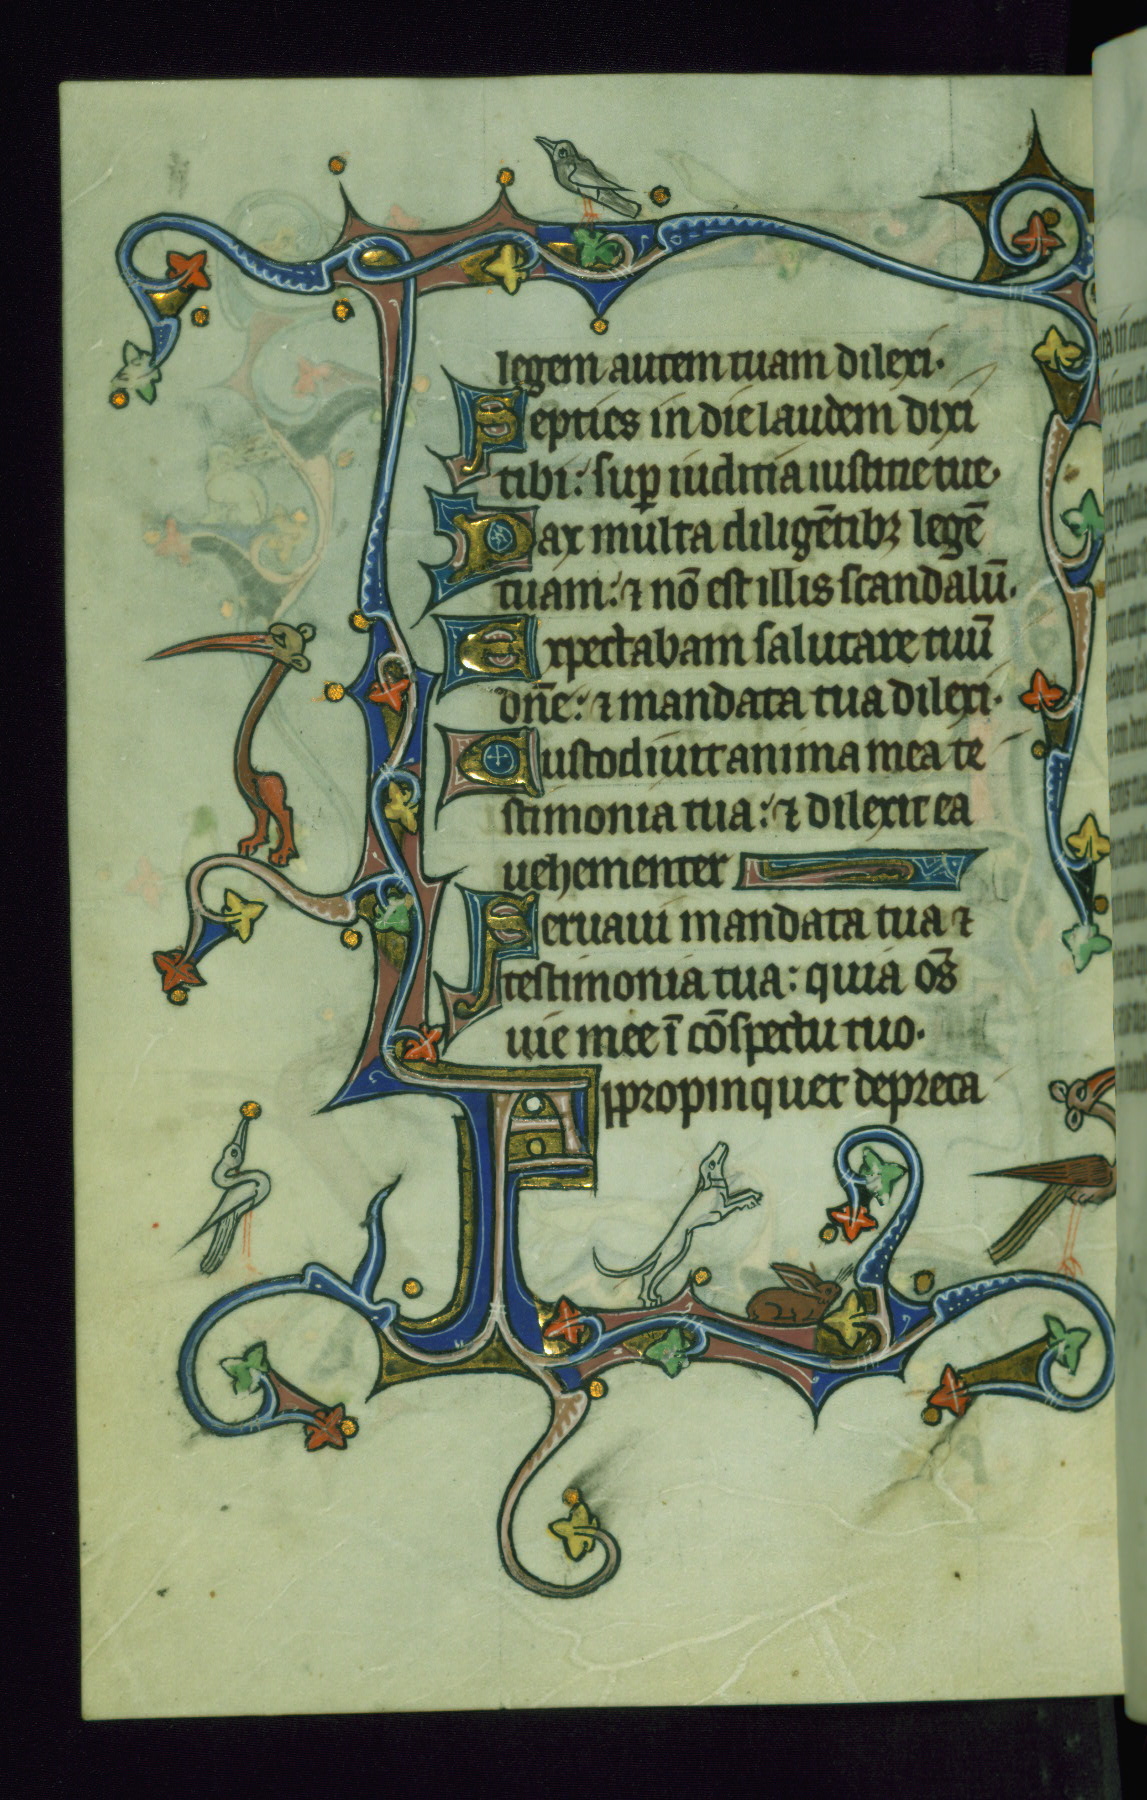 legem autem tuam dilexi.
Septies in die laudem dixi
tibi: sup iuditia iustitie tue.
Pax multa diligētibꝫ legē
tuam: ⁊ nō est illis scandalū.
Expectabam salutare tuū
dn̄e: ⁊ mandata tua dilexi.
Custodiuit anima mea te
stimonia tua: ⁊ dilexit ea
uehementer
Seruaui mandata tua ⁊
testimonia tua: quia om̄s
uie mee ī cōspectu tuo.
Appropinquet depreca